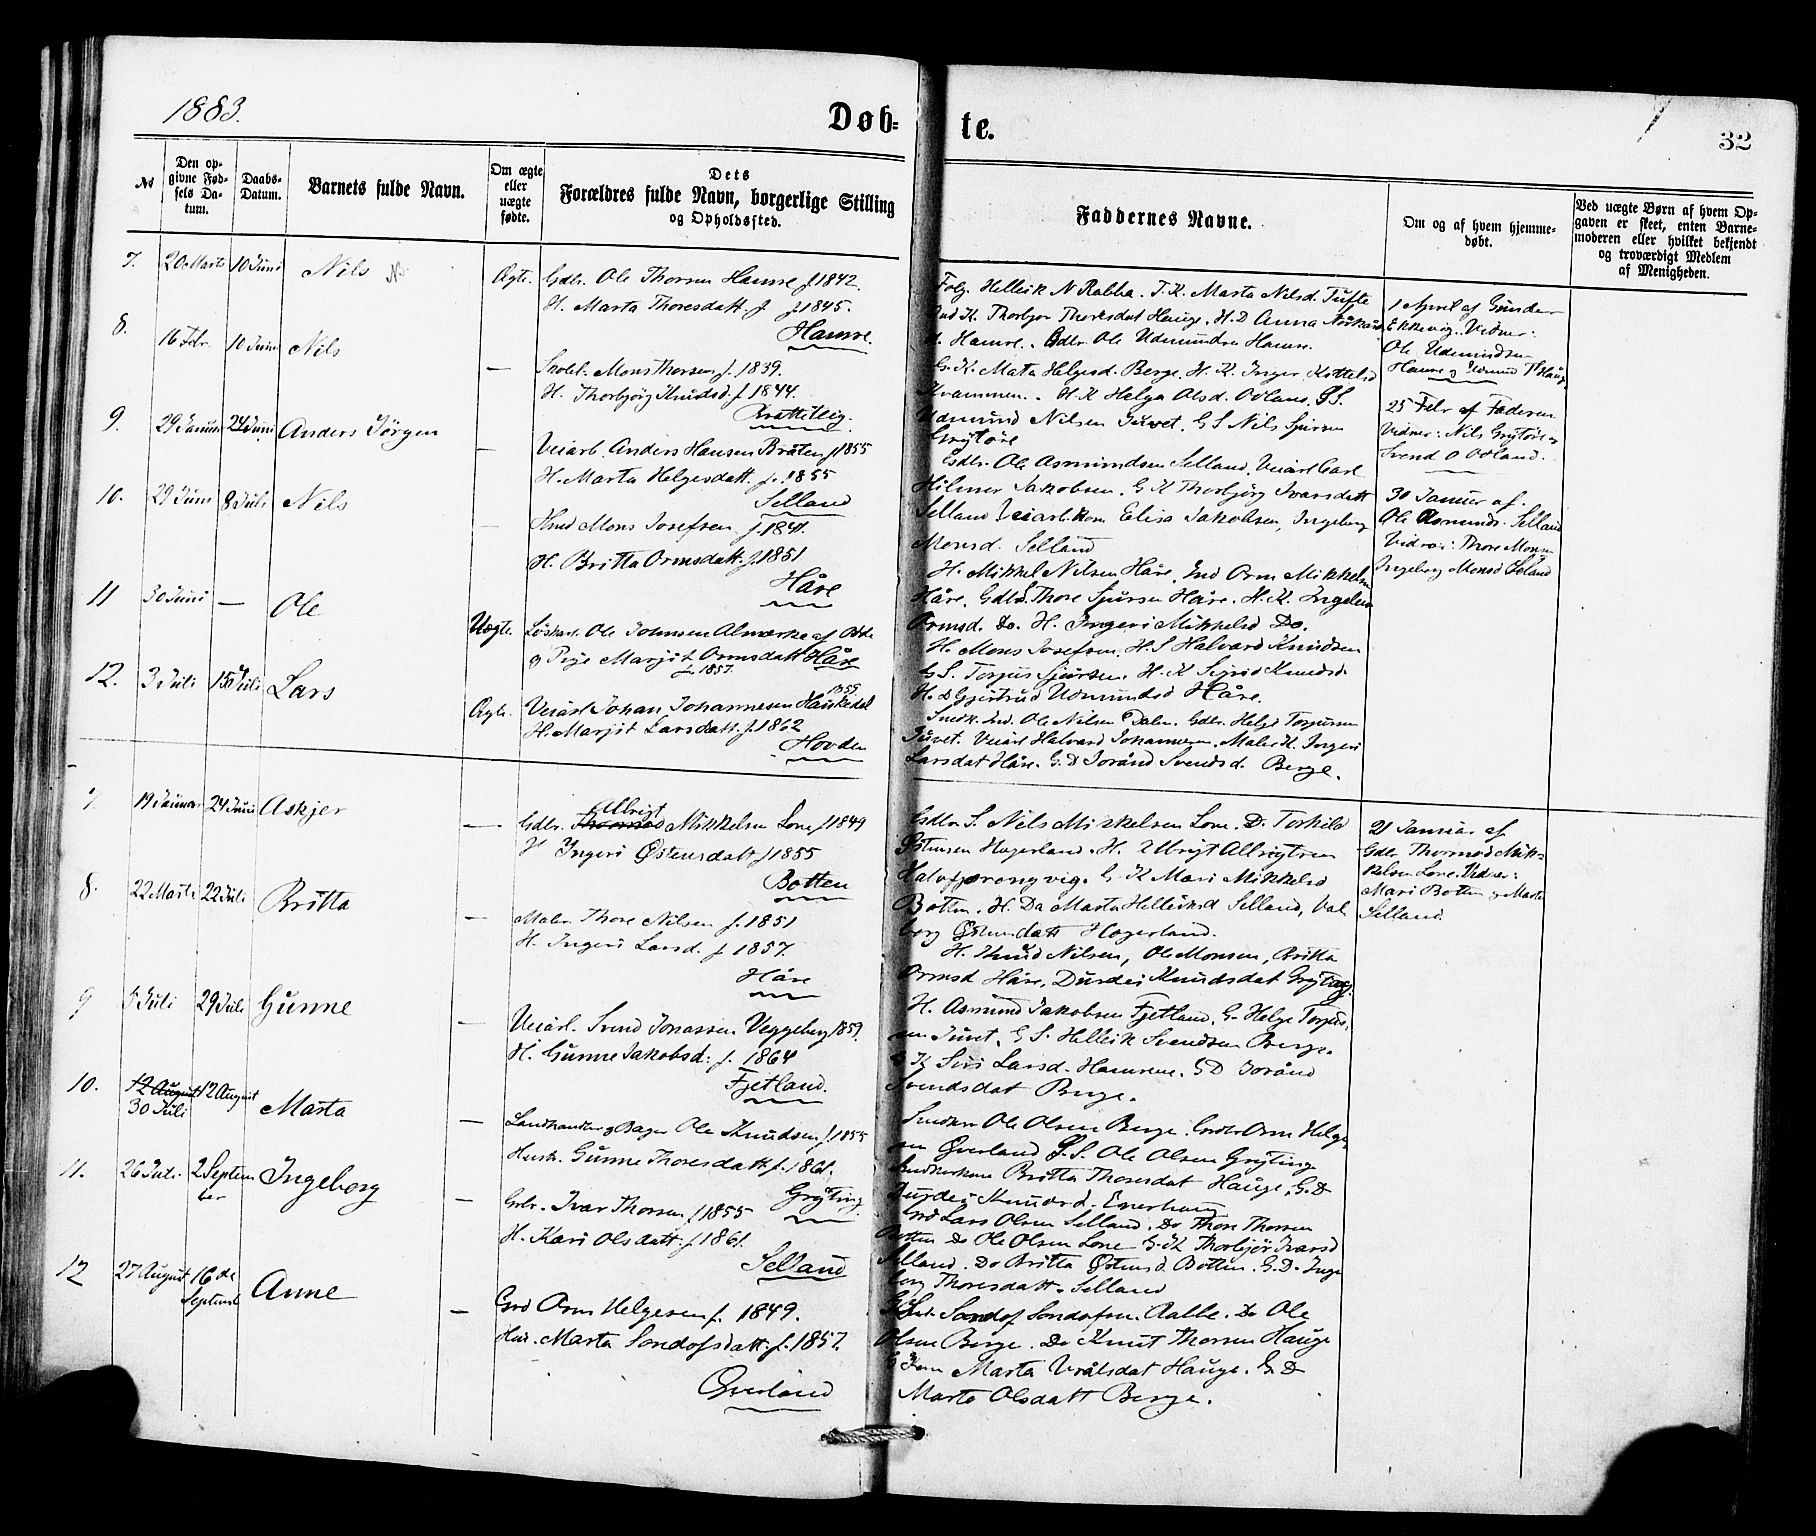 1883.
Døb-
te.
32
No
Den op-
givne Fød-
sels Da-
tum.
Daabs-
Datum.
Barnets fulde Navn.
Om ægte
eller
uægte
fødte.
Dets
Forældres fulde Navn, borgerlige Stilling
og Opholdssted.
Faddernes Navne.
Om og af hvem hjemme-
døbt.
Ved uægte Børn af hvem Op-
gaven er skeet, enten Barne-
moderen eller hvilket bekjendt
og troværdigt Medlem
af Menigheden.
7. 20 Marts 10 Juni Nils Ægte. Gdbr. Ole Thorsen Hamre f. 1842.
H. Marta Thoresdatt. f. 1845.
Hamre.
Helleik N Rabba. T. K. Marta Nilsd. Tufte
K. Thorbjør Thorksdat Hauge. H. D Anna
Hamre. Gdbr. Ole Udmundsen Hamre.
1 April af Gunder
Ekkevig. Vidner:
Ole Udmundsen
Hamre og Udmund T Hauge
8. 16 Febr. 10 Juni Nils — Skolel. Mons Thorsen f. 1839.
H. Thorbjørg Knudsd. f 1844.
Brattelig.
G. K. Marta Helgesd. Berge. H. K. Inger Kettelsd
Kvammen. H. K Helga Olsd. Odland. G S.
Udmund Nilsen Juvet. G S Nils Sjursen
Grytøre
25 Febr af Faderen
Vidner: Nils Grytøre og
Svend O Odland.
9. 29 Januar 24 Juni Anders Jörgen — Veiarb. Anders Hansen Bråten f 1855
H. Marta Helgesdatt. f. 1855
Selland
Gdbr. Ole Asmundsen Selland. Veiarb Carl
Hilmer Jakobsen. G K Thorbjörg Ivarsdatt
Selland Veiarb. kone Elisa Jakobsen, Ingeborg
Monsd. Selland
30 Januar af
Ole Asmunds. Selland
Vidner: Thore Monsen
Ingeborg Monsd Seland
10. 29 Juni 8 Juli Nils — Hmd Mons Josefsen f 1841.
H. Britta Ormsdatt. f. 1851
Håre
H. Mikkel Nilsen Håre. Ind Orm Mikkelsen
Håre. Gdbr. Thore Sjursen Håre. H. K. Ingeleiv
Ormsd. Do. H. Ingeri Mikkelsd Do.
11 30 Juni — Ole Uægte. Løskarl. Ole Johnsen Almerke af Odde
og Pige Marjit Ormsdatt Håre
f. 1857.
H. Mons Josefsen. H. S Halvard Knudsen
G S. Torjus Sjursen. H. K Sigrid Knudsd.
H. D Gjertrud Udmundsd Håre.
12. 3 Juli 15 Juli Lars Ægte. Veiarb Johan Johannesen Hauskedal 1859
H. Marjit Larsdatt. f. 1862
Hovden
Smedk. Ind. Ole Nilsen Dalen. Gdbr. Helge Torjusen
Juvet. Veiarb Halvard Johannesen. Maler K. Ingeri
Larsdat Håre. G. D Jorånd Svendsd. Berge.
7. 19 Januar 24 Juni Askjer — Gdbr. Albrigt Mikkelsen Lone f 1849
H Ingeri Østensdatt f 1855
Botten
Gdbr S. Nils Mikkelsen Lone. D. Torkild
Østensen Hagerland. H. Albrigt Albrigtsen
G. K Mari Mikkelsd
Botten. H. Da Marta Helleiksd Selland, Val
borg Østensdatt Hagerland.
21 Januar af
Gdbr Thormod Mik-
kelsen Lone. Vidner:
Mari Botten og Marta
Selland.
8. 22 Marts 22 Juli Britta — Maler. Thore Nilsen f. 1851
H. Ingeri Larsd. f 1857.
Håre
H. Knud Nilsen, Ole Monsen, Britta
Ormsd Håre. Durdei Knudsdat Gryting.
9 5 Juli 29 Juli Gunne — Veiarb. Svend Jonassen Veggeberg 1859.
H. Gunne Jakobsd: f. 1864
Fjetland.
H. Asmund Jakobsen Fjetland. G. Helge Torjus-
sen Juvet. G S. Helleik Svendsen Berge.
G K Siri Larsd. Hamrene. G D Jorånd
Svendsdat Berge.
10. 12 August 12 August Marta
30 Juli — Landhandler og Bager Ole Knudsen f 1855
Hust. Gunne Thoresdatt f. 1861.
Gryting
Smedkn Ole Olsen Berge. Gdbr Orm Helge-
sen Øverland G. S. Ole Olsen Gryting
Smedkerkone Britta Thoresdat Hauge, G. D
Durdei Knudsd. Enerhaug
11. 26 Juli. 2 Septem Ingeborg
ber — Gdbr. Ivar Thorsen f 1855
H. Kari Olsdatt. f. 1861.
Selland
Grd Lars Olsen Selland. Do Thore Thorsen
Botten Do Ole Olsen Lone G. K Thorbjør Ivarsd
Selland. Do Britta Østensd Botten. G. D. Inge
borg Thoresdatt. Selland
12 27 August 16de Anne
Septembr — Grd Orm Helgesen f. 1849.
Hus. Marta Sondofsdatt. f. 1857.
Øverland
Sondof Sondofsen. Rabbe. Do Ole
Olsen Berge. Do Knut Thorsen Hauge
G Kone Marta Vrålsdat Hauge. G. D
Marta Olsdatt Berge.